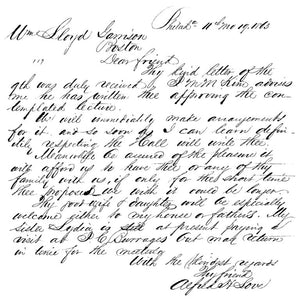 Philada 11th mo 19. 1863
Wm Lloyd Garrison
Boston
Dear friend
Thy kind letter of the
9th was duly received & J M M Kim advises
me he has written thee approving the con-
templated lecture.
We will immediately make arrangements
for it, and so soon as I can learn defin-
itely respecting the Hall will write thee
Meanwhile be assured of the pleasure it
will afford us to have thee or any of thy
family with us, if only for the short time
thee proposes we wish it could be longer.
Thy good wife & daughter will be especially
welcome either to my house or fathers. My
sister Lydia is at present paying a
visit at J E Burrages but may return
in time for the meeting
With the kindest regards
Thy friend
Alfred H Love